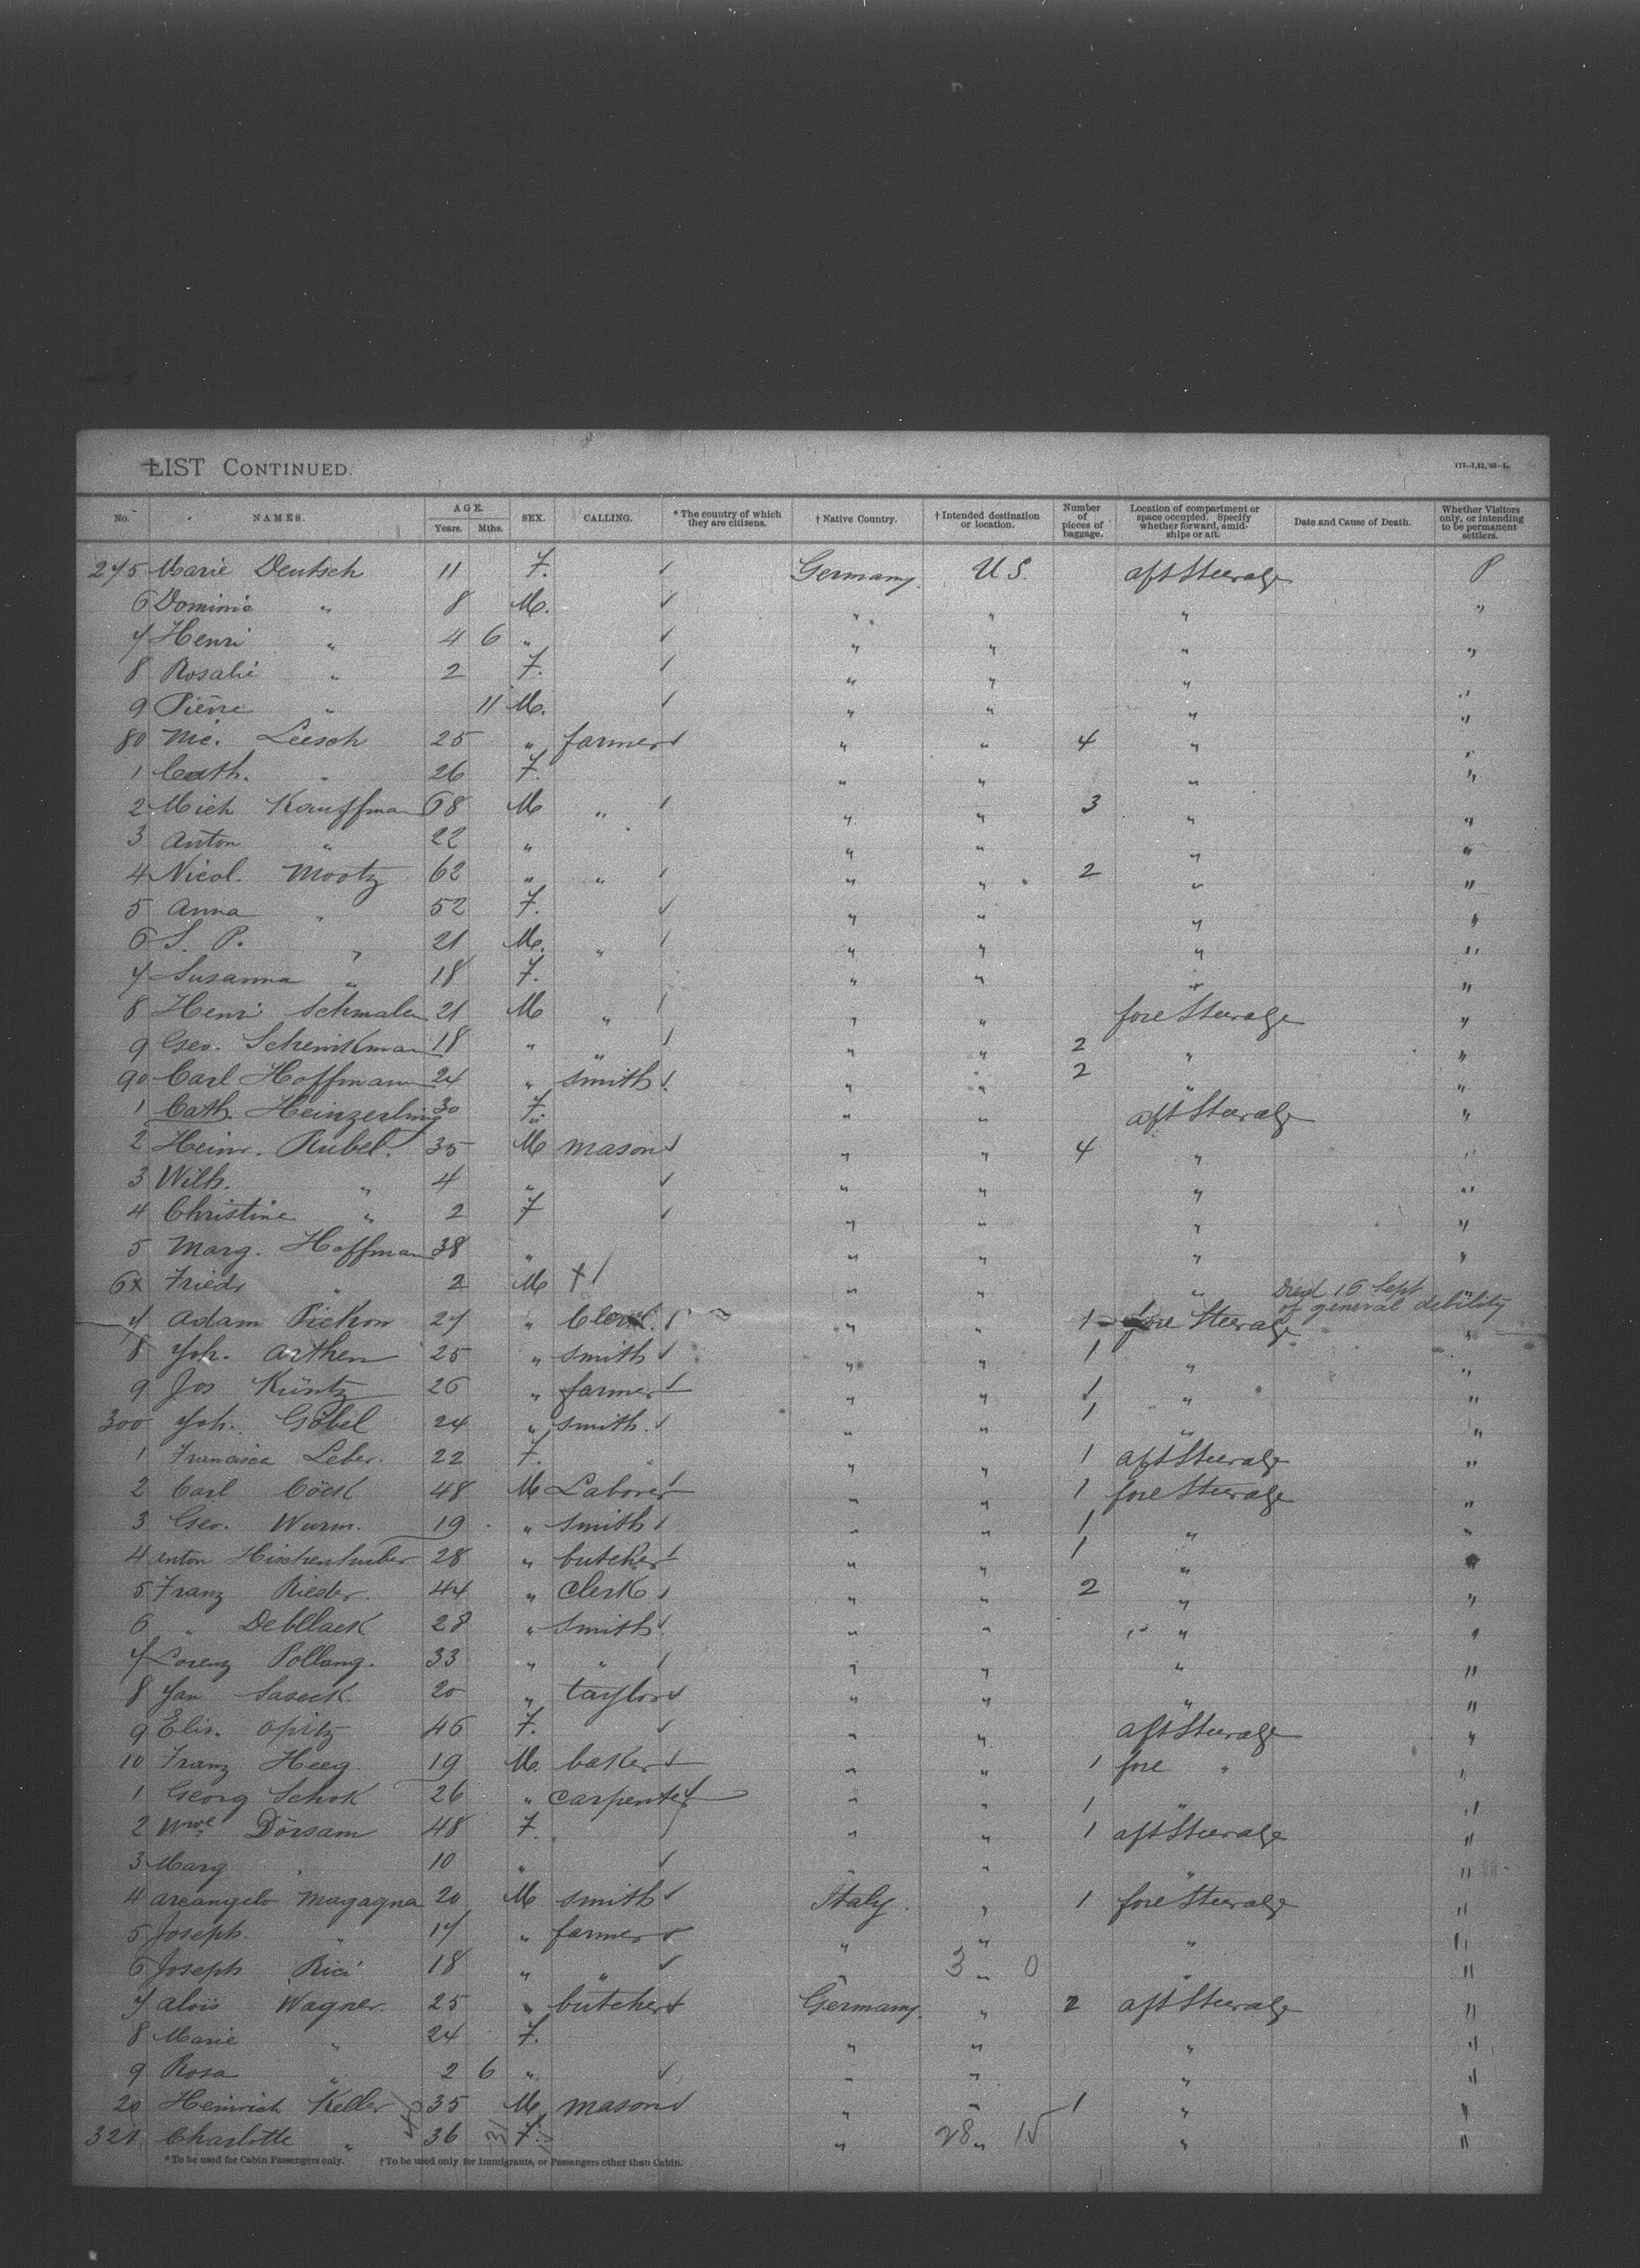 LIST CONTINUED.
No. NAMES. AGE. Years. Mths. SEX. CALLING. * The country of which they are citizens. † Native Country. † Intended destination or location. Number of pieces of baggage. Location of compartment or space occupied. Specify whether forward, amidships or aft. Date and Cause of Death. Whether Visitors only, or intending to be permanent settlers.
275 Marie Deutsch 11 F. ✓ Germany. U S. aft Steerage P
6 Dominic " 8 M. ✓ " " " "
7 Henri " 4 6 " ✓ " " " "
8 Rosalie " 2 F. ✓ " " " "
9 Pierre " 11 M. ✓ " " " "
80 Nic. Leesch 25 " farmer ✓ " " 4 " "
1 Cath. " 26 F. " " " "
2 Mich Kauffman 68 M " ✓ " " 3 " "
3 Anton " 22 " " " " "
4 Nicol. Mootz 62 " " ✓ " " 2 " "
5 Anna " 52 F. ✓ " " " "
6 S. P. " 21 M. " ✓ " " " "
7 Susanna " 18 F. " " " "
8 Henri Schmalen 21 M " ✓ " " fore Steerage "
9 Geo. Schenkman 18 " " ✓ " " 2 " "
90 Carl Hoffmann 24 " smith ✓ " " 2 " "
1 Cath. Heinzerling 30 F. " " aft Steerage "
2 Heinr. Rubel. 35 M mason ✓ " " 4 " "
3 Wilh. " 4 " ✓ " " " "
4 Christine " 2 F ✓ " " " "
5 Marg. Hoffman 38 " " " " "
6x Friedr " 2 M † / " " " Died 16 Sept of general debility "
7 Adam Pickon 27 " Clerk. ✓ " " 1 fore Steerage "
8 Joh. Arthen 25 " smith ✓ " " 1 " "
9 Jos Küntz 26 " farmer ✓ " " 1 " "
300 Joh. Göbel 24 " smith. ✓ " " 1 " "
1 Francisca Leber. 22 F. " " 1 aft Steerage "
2 Carl Cöck 48 M Laborer ✓ " " 1 fore Steerage "
3 Geo. Wurm. 19 " smith ✓ " " 1 " "
4 Anton Hischenhuber 28 " butcher ✓ " " 1 " "
5 Franz Rieder. 44 " Clerk ✓ " " 2 " "
6 " Debllack 28 " smith ✓ " " " "
7 Lorenz Pollang. 33 " " ✓ " " " "
8 Jan Saseck. 20 " taylor ✓ " " " "
9 Elis. Opitz 46 F. ✓ " " aft Steerage "
10 Franz Heeg. 19 M. baker ✓ " " 1 fore " "
1 Georg Schok 26 " carpenter ✓ " " 1 " "
2 Wwe Dörsam 48 F. / " " 1 aft Steerage "
3 Marg " 10 " ✓ " " " "
4 Arcangelo Magagna 20 M smith ✓ Italy. " 1 fore Steerage "
5 Joseph. " 17 " farmer ✓ " " " "
6 Joseph Rici 18 " " ✓ " 3 " 0 " "
7 Alois Wagner. 25 " butcher ✓ Germany. " 2 aft Steerage "
8 Marie " 24 F. " " " "
9 Rosa " 2 6 " ✓ " " " "
20 Heinrich Keller 35 M, mason ✓ " " 1 " "
321 Charlotte " 36 F. " 28 " 15 " "
* To be used for Cabin Passengers only. † To be used only for Immigrants, or Passengers other than Cabin.